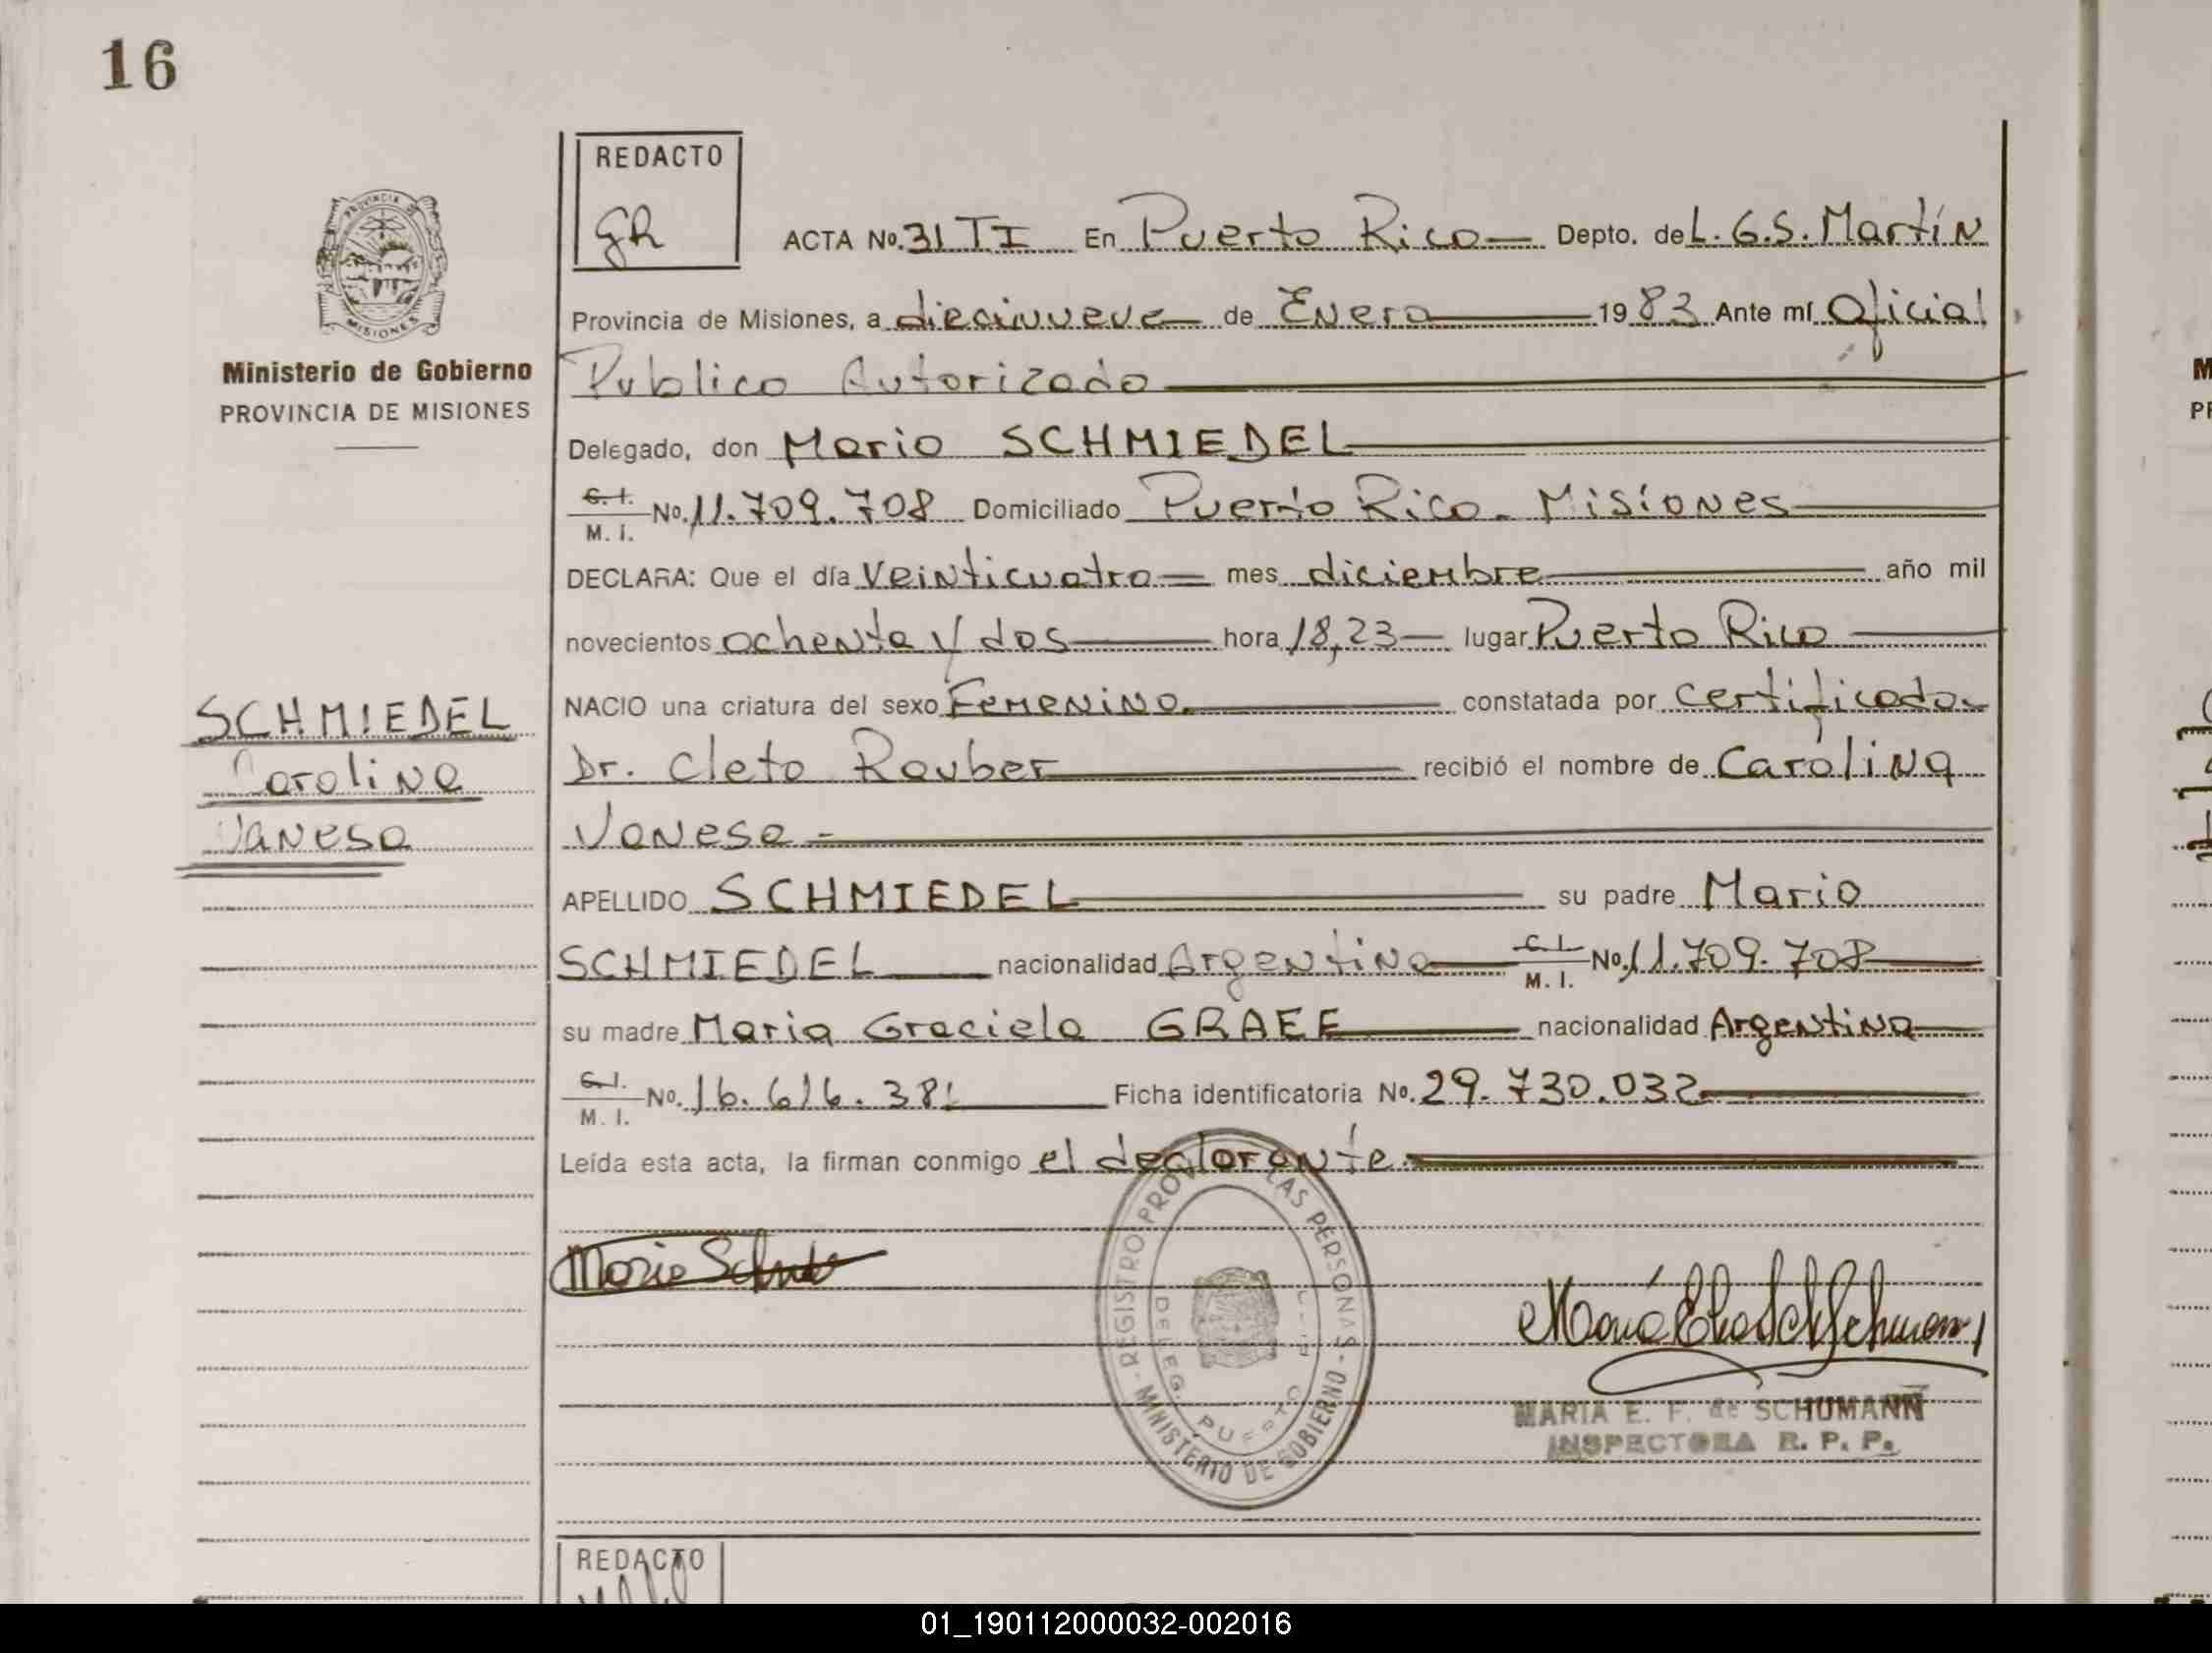 16
REDACTO
GR
ACTA No. 31 TI En Puerto Rico Depto. de L. G. S. Martín
Provincia de Misiones, a diecinueve de Enero 1983 Ante mí Oficial
Publico Autorizado
Ministerio de Gobierno
PROVINCIA DE MISIONES
Delegado, don Mario SCHMIEDEL
C.I. M. I. No. 11.709.708 Domiciliado Puerto Rico - Misiones
DECLARA: Que el día Veinticuatro mes diciembre año mil
novecientos ochenta y dos hora 18,23 lugar Puerto Rico
NACIO una criatura del sexo Femenino constatada por certificado
Dr. Cleto Rauber recibió el nombre de Carolina
Vanesa
SCHMIEDEL
Carolina
Vanesa
APELLIDO SCHMIEDEL su padre Mario
SCHMIEDEL nacionalidad Argentina C.I. M. I. No. 11.709.708
su madre Maria Graciela GRAEF nacionalidad Argentina
C.I. M. I. No. 16.616.381 Ficha identificatoria No. 29.730.032
Leída esta acta, la firman conmigo el declarante
REGISTRO PROV LAS PERSONAS - MINISTERIO DE GOBIERNO -
DELEG. PUERTO
MARIA E. F. de SCHUMANN
INSPECTORA R. P. P.
REDACTO
01_190112000032-002016